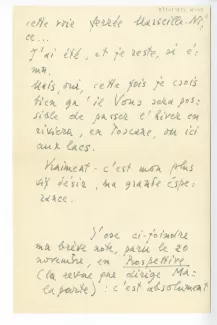 cette voie ferrée Marseille-Ni-
ce...
J'ai été, et je reste, si é-
mu.
Mais oui, cette fois je crois
bien qu'il Vous sera pos-
sible de passer l'hiver en
riviera, en Toscane, ou ici
aux lacs.
Vraiment - c'est mon plus
vif désir, ma grande espé-
rance.
J'ose ci-joindre
ma brève note, parue le 20
novembre, en Prospettive
(la revue que dirige Ma-
laparte) : c'est absolument